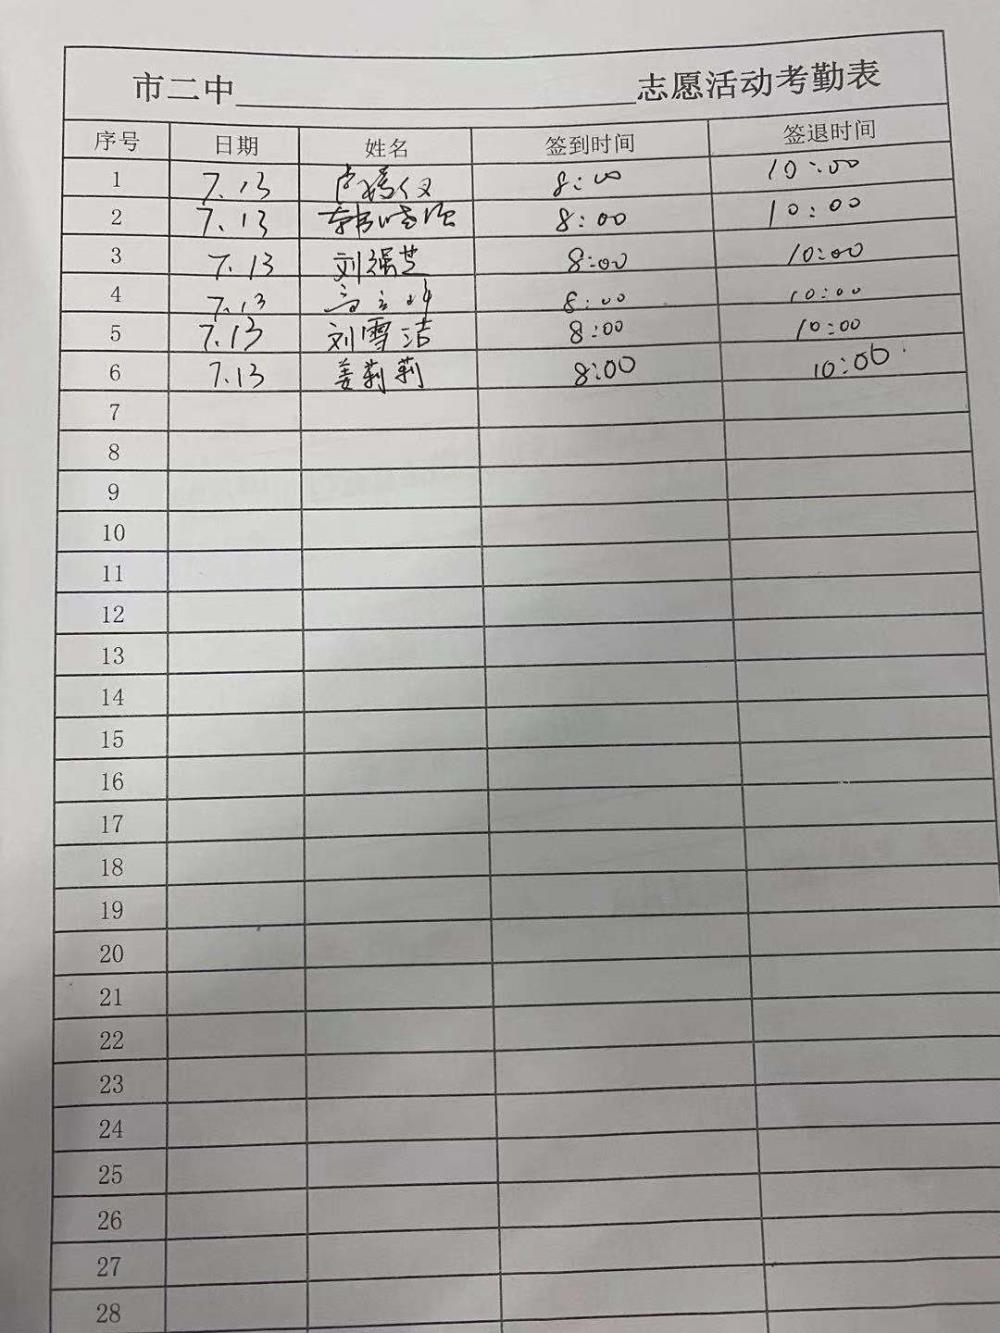 市二中____________________志愿活动考勤表
序号 日期 姓名 签到时间 签退时间
1 7.13 8:00 10:00
2 7.13 韩 8:00 10:00
3 7.13 刘强芝 8:00 10:00
4 7.13 8:00 10:00
5 7.13 刘雪洁 8:00 10:00
6 7.13 姜莉莉 8:00 10:00
7
8
9
10
11
12
13
14
15
16
17
18
19
20
21
22
23
24
25
26
27
28